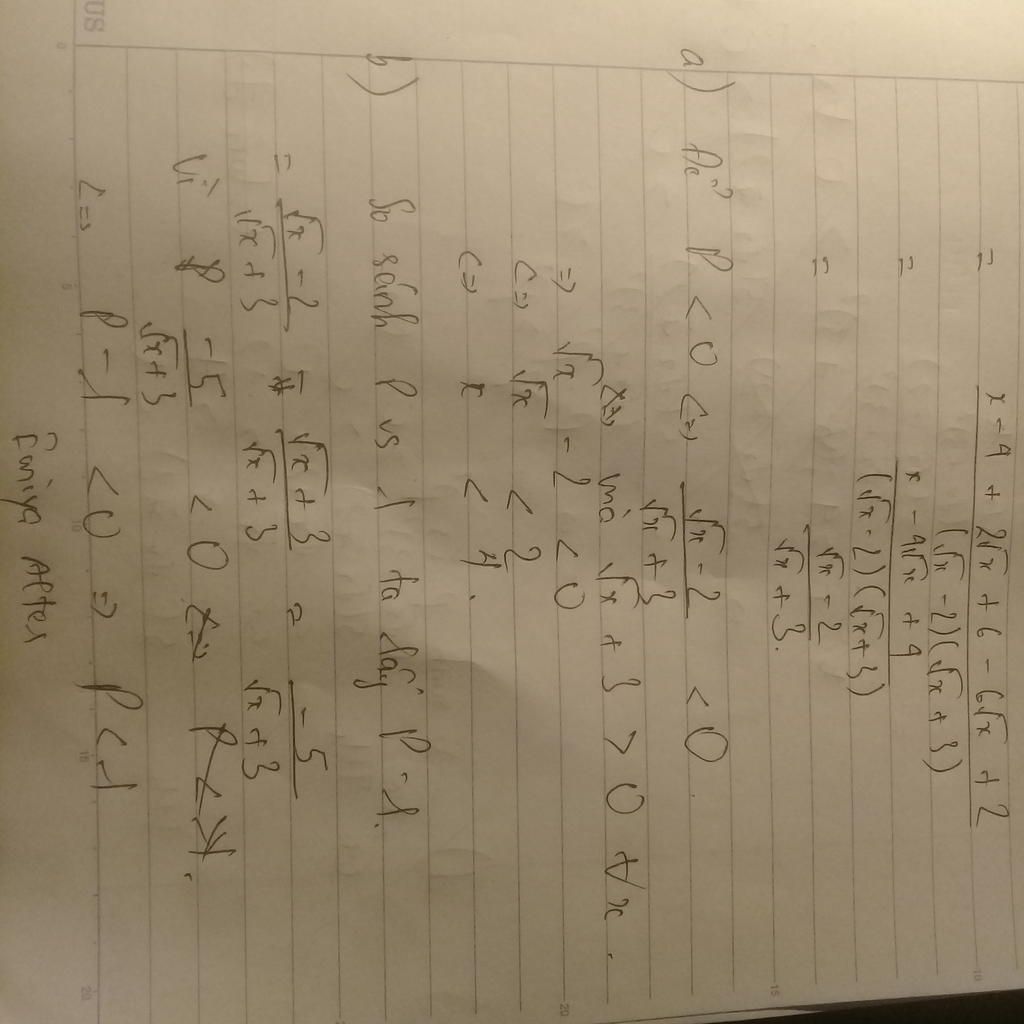 = \frac{x - 4 + 2\sqrt{x} + 6 - 6\sqrt{x} + 2}{(\sqrt{x} - 2)(\sqrt{x} + 3)}
= \frac{x - 4\sqrt{x} + 4}{(\sqrt{x} - 2)(\sqrt{x} + 3)}
= \frac{\sqrt{x} - 2}{\sqrt{x} + 3}.
a) Để P < 0 <=> \frac{\sqrt{x} - 2}{\sqrt{x} + 3} < 0.
mà \sqrt{x} + 3 > 0 ∀x.
=> \sqrt{x} - 2 < 0
<=> \sqrt{x} < 2
<=> x < 4.
b) So sánh P vs 1 ta lấy P - 1.
= \frac{\sqrt{x} - 2}{\sqrt{x} + 3} - \frac{\sqrt{x} + 3}{\sqrt{x} + 3} = \frac{-5}{\sqrt{x} + 3}
Vì \frac{-5}{\sqrt{x} + 3} < 0
<=> P - 1 < 0 => P < 1
After
US
0
5
10
15
20
10
15
20